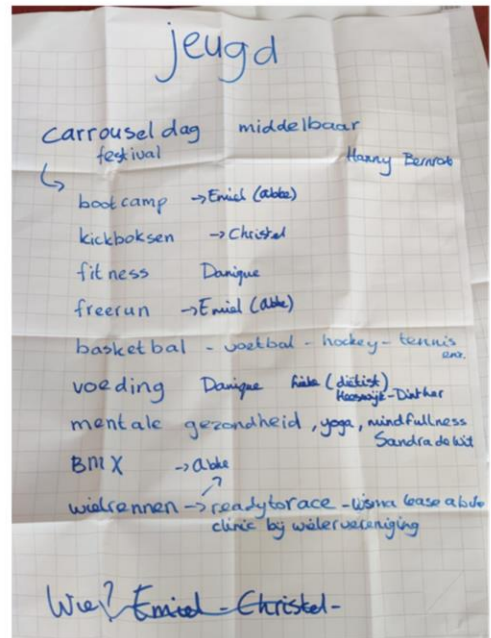 jeugd
carrousel dag middelbaar
festival
Hanny Bernrode
bootcamp → Emiel (abbe)
kickboksen → Christel
fitness Danique
freerun → Emiel (abbe)
basketbal - voetbal - hockey - tennis
enz.
voeding Danique (diëtist)
Heeswijk-Dinther
mentale gezondheid, yoga, mindfullness
Sandra de Wit
BMX → abbe
wielrennen → readytorace - wisma lease a bike
clinic bij wielervereniging
Wie? Emiel - Christel -